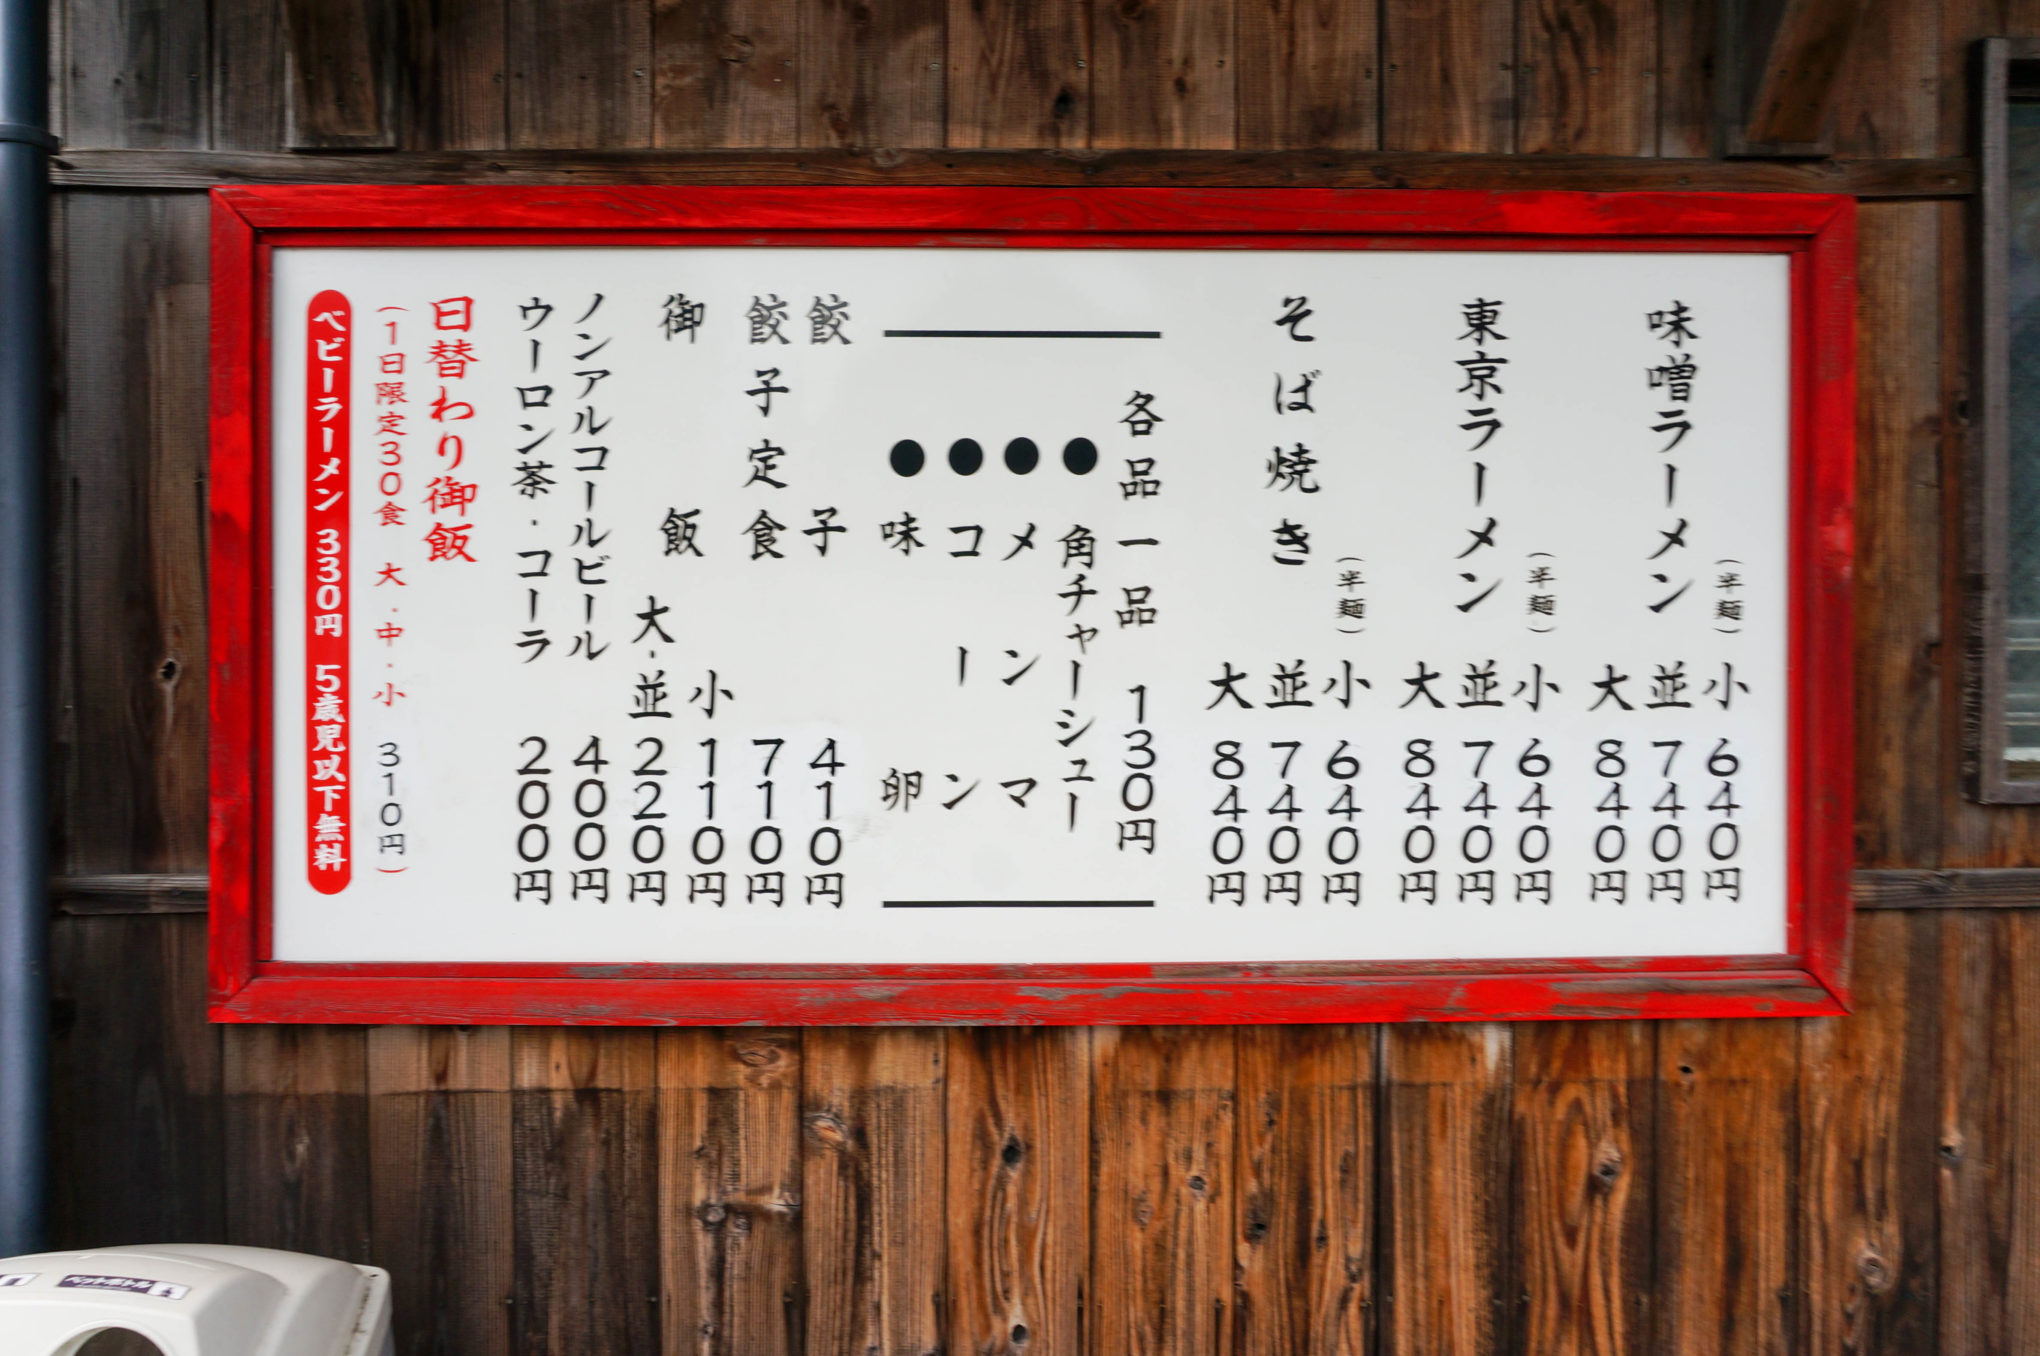 味噌ラーメン
(半麺) 小 640円
並 740円
大 840円
東京ラーメン
(半麺) 小 640円
並 740円
大 840円
そば焼き
(半麺) 小 640円
並 740円
大 840円
各品一品 130円
●角チャーシュー
●メンマ
●コーン
●味卵
餃子 410円
餃子定食 710円
御飯
小 110円
大・並 220円
ノンアルコールビール 400円
ウーロン茶・コーラ 200円
日替わり御飯
(1日限定30食 大・中・小 310円)
ベビーラーメン 330円 5歳児以下無料
ペットボトル